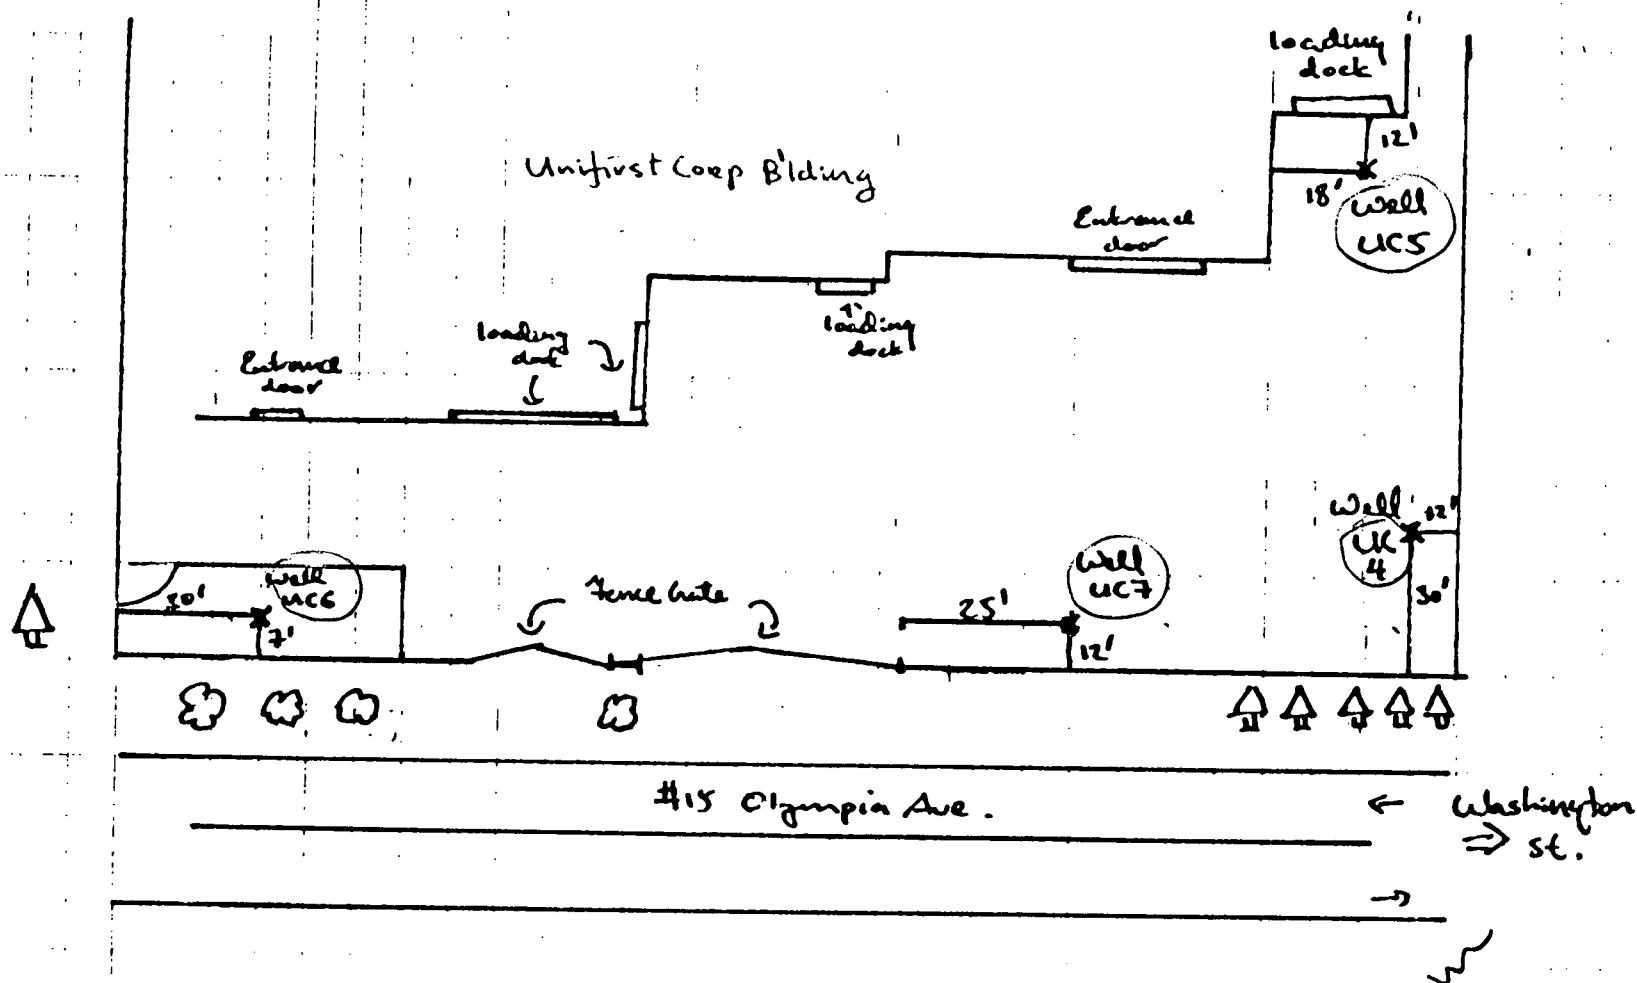 loading
dock
12'
18'
Well
UC5
Unifirst Corp B'lding
Entrance
door
loading
dock
loading
dock
Entrance
door
Well
UC
4
12'
30'
Well
UC6
7'
Fence Gate
25'
Well
UC7
12'
#15 Olympia Ave.
Washington
St.